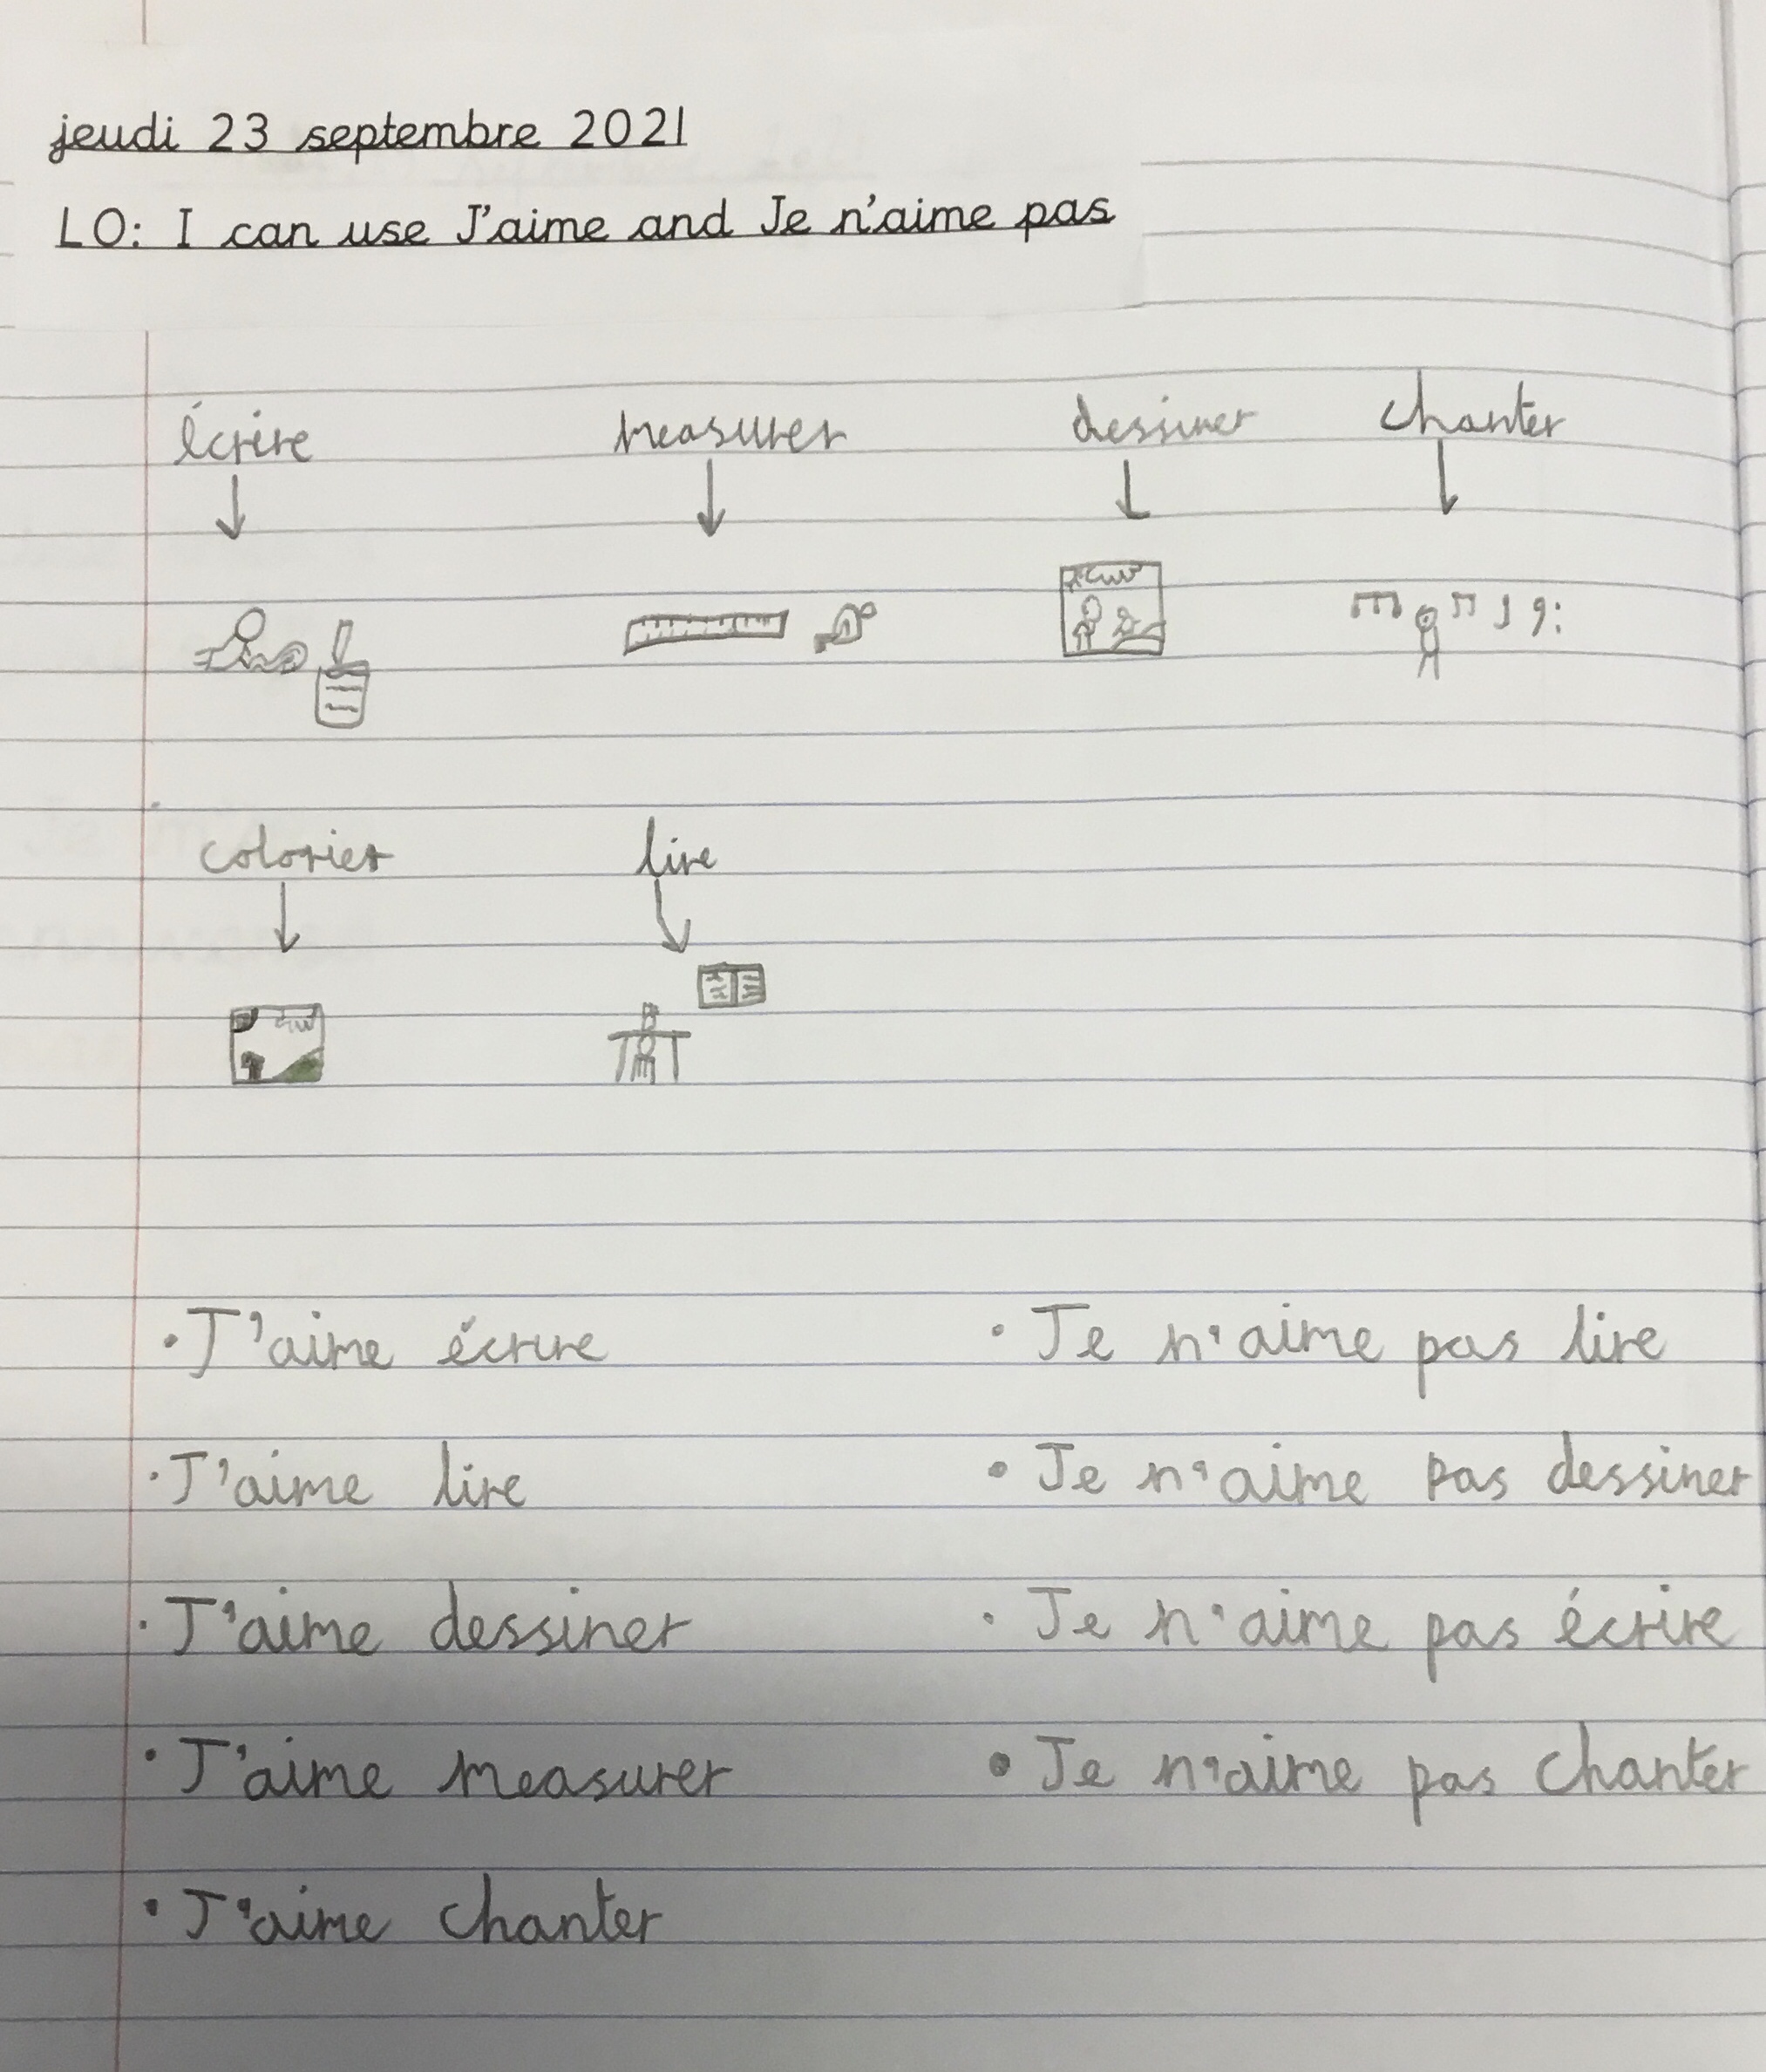 jeudi 23 septembre 2021
LO: I can use J'aime and Je n'aime pas
écrire measurer dessiner chanter
colorier lire
· J'aime écrire · Je n'aime pas lire
· J'aime lire · Je n'aime pas dessiner
· J'aime dessiner · Je n'aime pas écrire
· J'aime measurer · Je n'aime pas chanter
· J'aime chanter